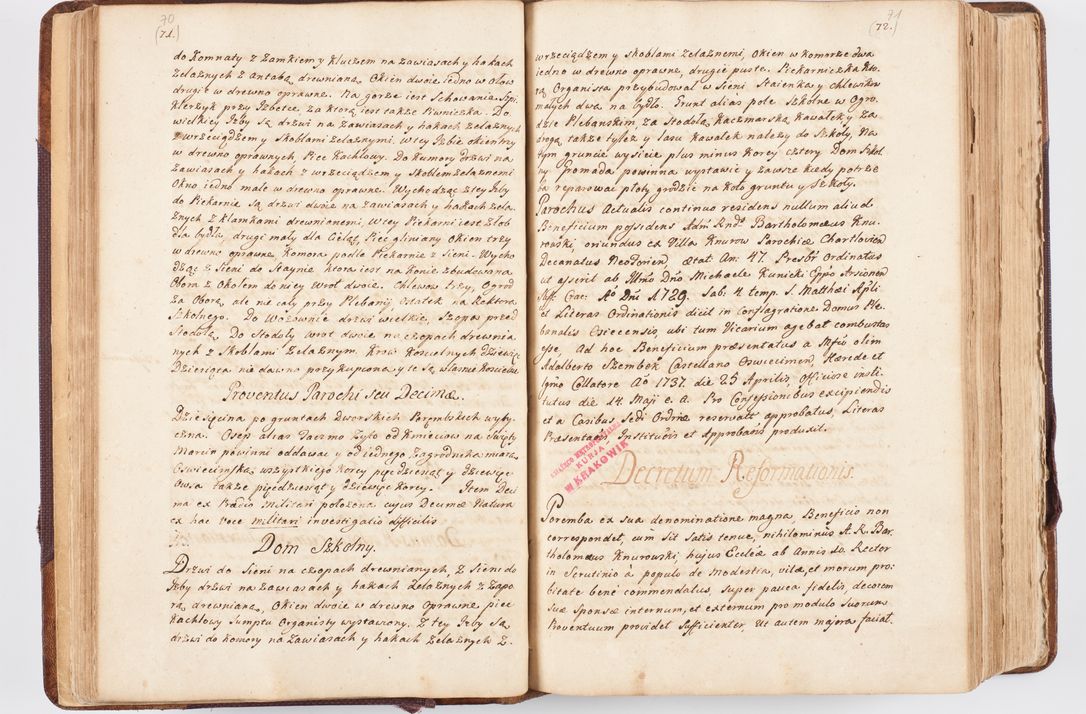 70
(71.)
do Komnaty z Zamkiem y kluczem na zawiasach y hakach
żelaznych z antabą drewnianą. Okien dwoie iedno w Ołow
drugie w drewno oprawne. Na gorze iest Schowanie. Szpi-
klerzyk przy Izbetce, za ktorą iest także Piwniczka. Do
wielkiey Izby są drzwi na zawiasach y hakach żelaznych
z wrzeciądzem y skoblami żelaznymi, w tey Izbie okien trzy
w drewno oprawnych, Piec kachlowy. Do komory drzwi na
zawiasach y hakach z wrzeciądzem y skoblem żelaznemi
Okno iedno małe w drewno oprawne. Wychodząc z tey Izby
do Piekarnie są drzwi dwoie na zawiasach y hakach żela-
znych z klamkami drewnianemi, w tey Piekarni iest żłob
dla bydła, drugi mały dla Cieląt, Piec gliniany Okien trzy
w drewno oprawne Komora podle Piekarnie z Sieni. Wycho-
dząc z Sieni do Staynie ktora iest na konie zbudowana
Obora z Okołem do niey wrot dwoie. Chlewow trzy, Ogrod
za Oborą, ale nie cały przy Plebanij ostatek na Rektora
Szkolnego. Do Wozownie drzwi wielkie, Szopa przed
Stodołą. Do Stodoły wrot dwoie na czopach drewnia-
nych z Skoblami żelaznym. Krow Kościelnych dziewięć
Dziesiąta nie dawno przykupiona y te są własne Kościelne
Proventus Parochi seu Decimæ.
Dziesięcina po gruntach Dworskich Poręmbskich wyty-
czna. Osep alias Tacmo żyto od Kmieciow na Święty
Marcin powinni oddawać y od iednego Zagrodnika miarą
Oswiecimską wszystkiego korcy pięćdziesiąt y dziewięć
Owsa także pięćdziesiąt y dziewięć korcy. Item Deci-
ma ex Prædio Militari położona cujus Decimæ Natura
ex hac voce militari investigatio difficilis
Dom Szkolny.
Drzwi do Sieni na czopach drewnianych, z Sieni do
Izby drzwi na zawiasach y hakach żelaznych z Zapo-
rą drewnianą, Okien dwoie w drewno Oprawne, piec
kachlowy Sumptu Organisty wystawiony. Z tey Izby są
drzwi do komory na zawiasach y hakach żelaznych z
71
(72.)
wrzeciądzem y skoblami żelaznemi, Okien w komorze dwa
iedno w drewno oprawne, drugie puste. Piekarniczka kto-
rą Organista przybudował w Sieni Staienka y chlewikow
małych dwa na bydło. Grunt alias pole Szkolne w Ogro-
dzie Plebanskim, za Stodołą Kaczmarską kawałek y za
drogą także tyleż y lasu kawałek należy do Szkoły. Na
tym gruncie wysieie plus minus korcy cztery Dom Szkol-
ny Gromada powinna wystawić y zawsze kiedy potrze-
ba reparować płoty grodzić na koło gruntu y Szkoły.
Parochus Actualis continuo residens nullum aliud
Beneficium possidens Adm Rndˢ Bartholomæus Knu-
rowski, oriundus ex Villa Knurow Parochiæ Chartlovien
Decanatus Neoforien, ætat. An: 47. Presbr Ordinatus
ut asserit ab Illmo Dno Michaele Kunicki Eppo Arsionen
Suff: Crac: Ao Dni 1729. Sab: 4. temp. S. Matthæi Apli
et Literas Ordinationis dicit in Conflagratione Domus Ple-
banalis Osiecensis, ubi tum Vicarium agebat combustas
esse, Ad hoc Beneficium præsentatus a Mfco olim
Adalberto Szembek Castellano Oswiecimen, Hærede et
Igmo Collatore Ao 1737. die 25 Aprilis, Officiose insti-
tutus die 14. Maji e. A. Pro Confessionibus excipiendis
et a Casibus Sedi Ordriæ reservatis approbatus, Literas
Præsentaõis Institutõis et Approbaõis produxit.
KSIĘŻĘCO METROPOLITALNA
KURJA
W KRAKOWIE
Decretum Reformationis.
Poremba ex sua denominatione magna, Beneficio non
correspondet, cum sit satis tenue, nihilominùs A. R. Bar-
tholomæus Knurowski, hujus Eccliæ ab Annis 10. Rector
in Scrutinio à populo de Modestia, vitâ, et morum pro-
bitate bene commendatus, super pauca fidelis, decorem
suæ Sponsæ internum, et externum pro modulo suorum
Proventuum providet sufficienter, Ut autem majora faciat.